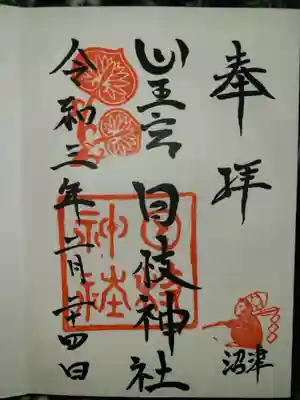 奉拝
沼津
山王宮 日枝神社
日枝神社
令和三年二月二十四日